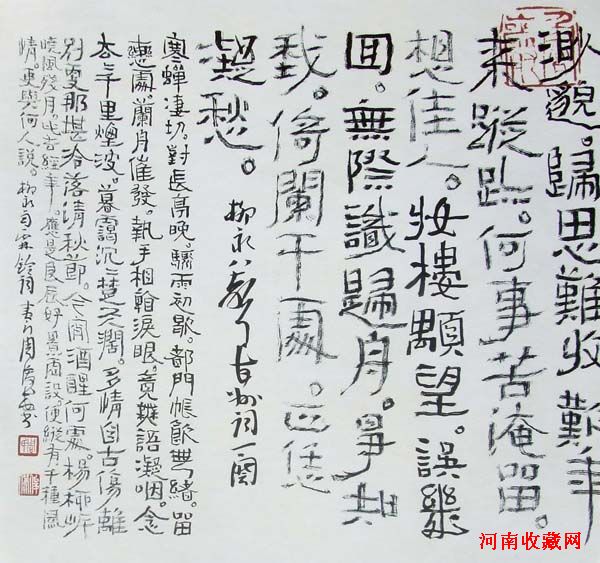 渺邈。歸思難收。歎年
來蹤跡。何事苦淹留。
想佳人。妝樓顒望。誤幾
回。無際識歸舟。爭知
我。倚闌干處。正恁
凝愁。
柳永八聲甘州詞一闋
寒蟬凄切。對長亭晚。驟雨初歇。都門帳飲無緒。留
戀處蘭舟催發。執手相看淚眼。竟無語凝咽。念
去去千里煙波。暮靄沉沉楚天闊。多情自古傷離
別。更那堪冷落清秋節。今宵酒醒何處。楊柳岸
曉風殘月。此去經年。應是良辰好景虛設。便縱有千種風
情。更與何人說。柳永雨霖鈴詞
河南收藏网